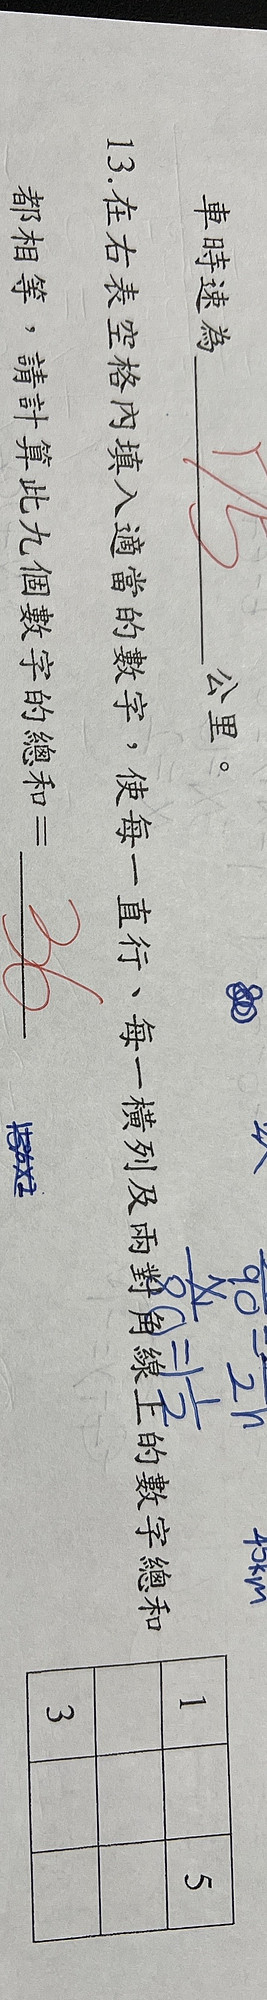 車時速為 175 公里。
80
90 = 1/2 h
45km
x/80 = 1 1/2
13.在右表空格內填入適當的數字，使每一直行、每一橫列及兩對角線上的數字總和
都相等，請計算此九個數字的總和＝ 36
1 5
3